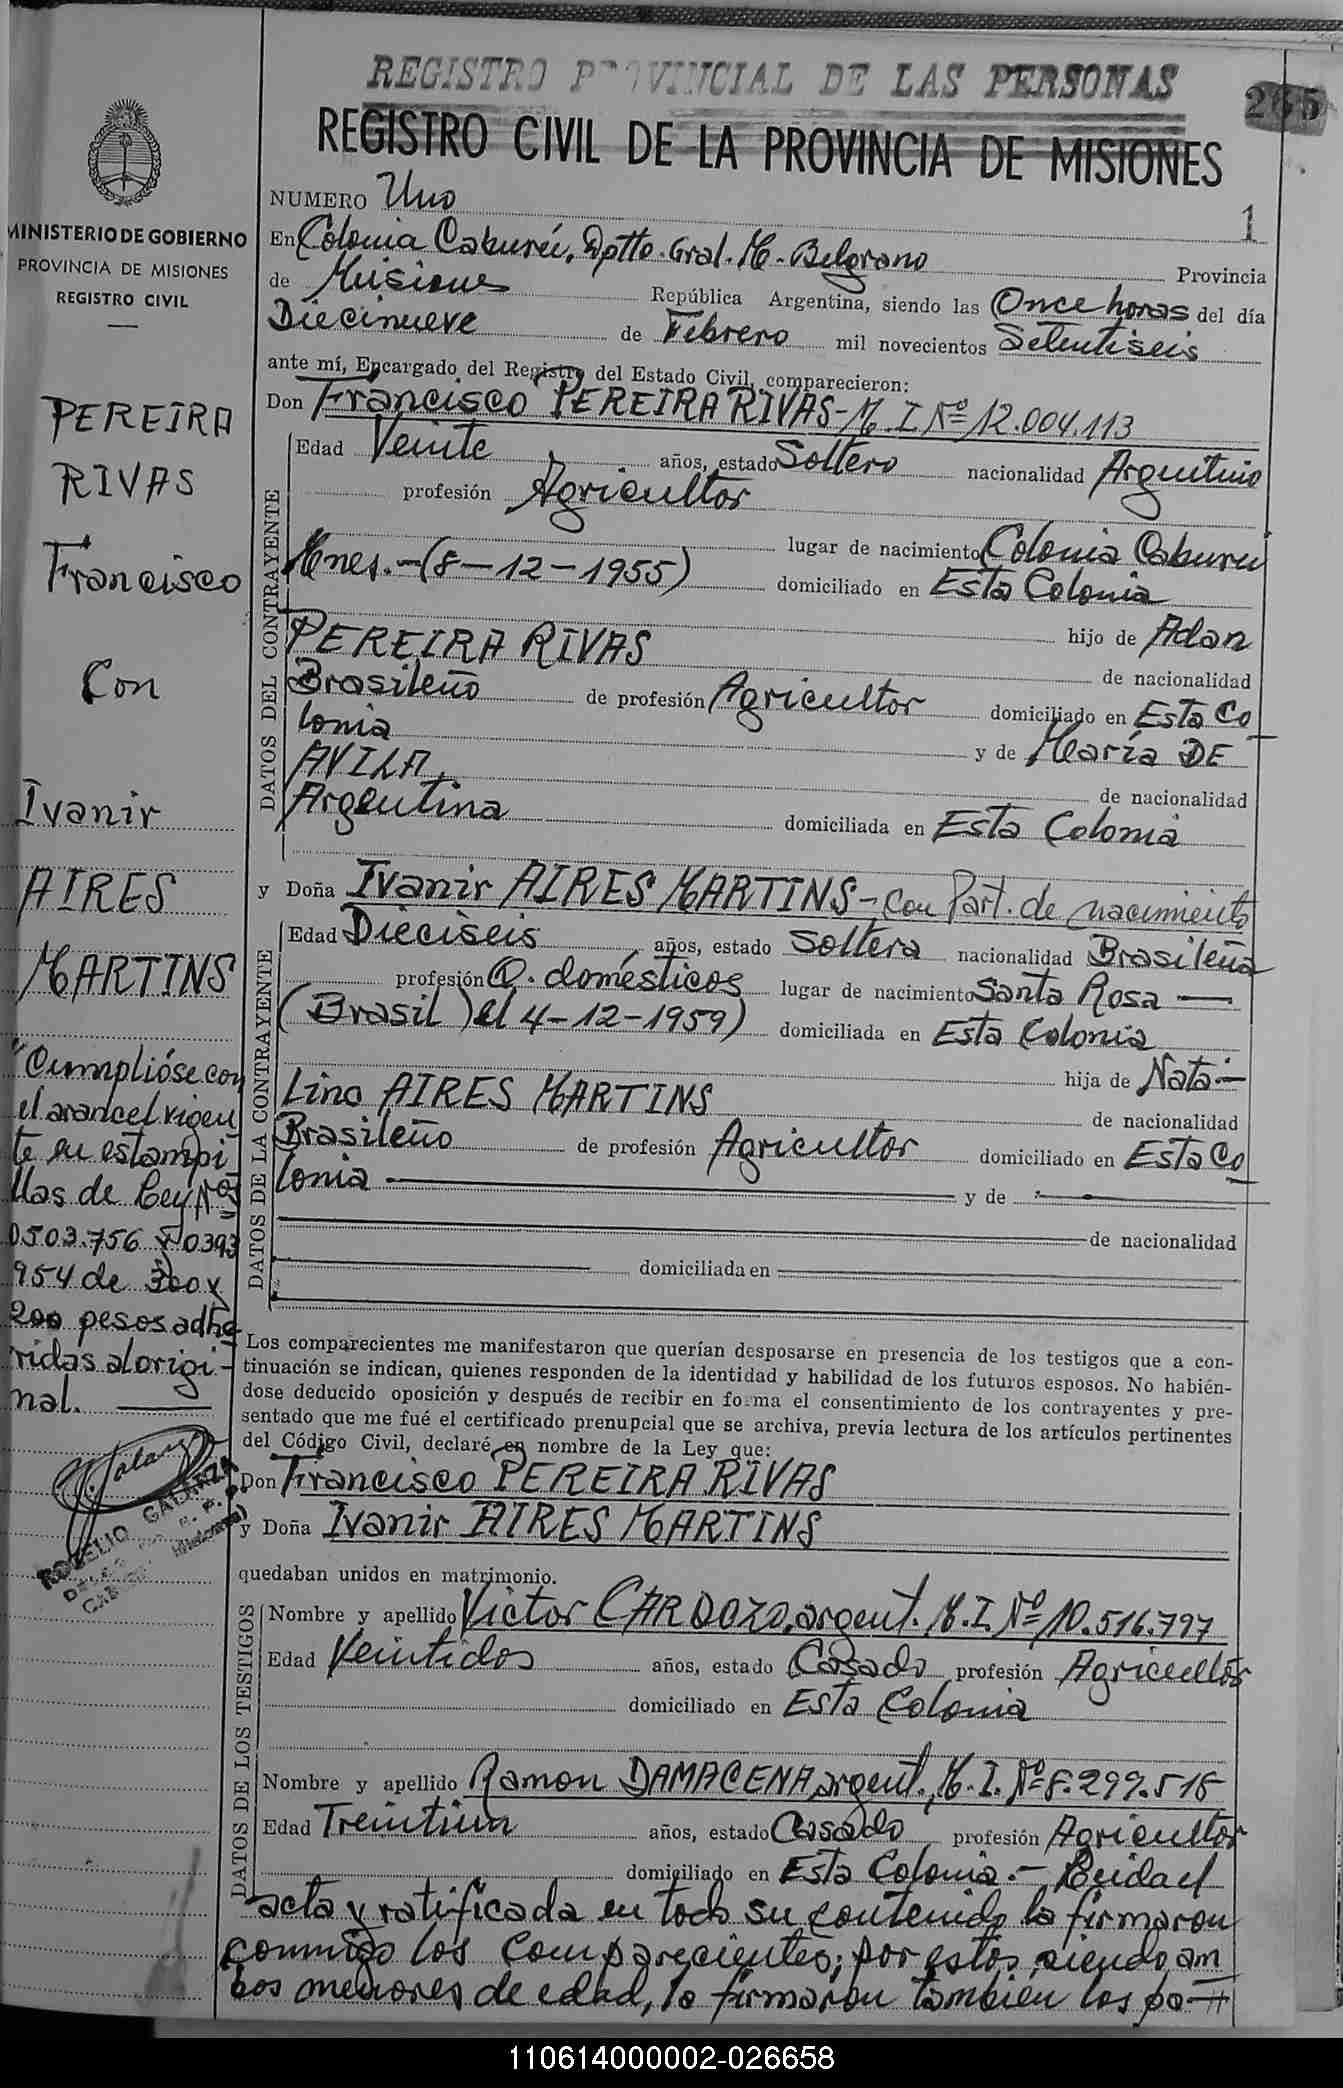 REGISTRO PROVINCIAL DE LAS PERSONAS
265
REGISTRO CIVIL DE LA PROVINCIA DE MISIONES
MINISTERIO DE GOBIERNO
PROVINCIA DE MISIONES
REGISTRO CIVIL
PEREIRA
RIVAS
Francisco
Con
Ivanir
AIRES
MARTINS
"Cumplióse con
el arancel vigen
te en estampi
llas de Ley Nos
0503.756 y 0393
954 de 300 y
200 pesos adhe
ridas al origi-
nal.
ROGELIO GALARZA
NUMERO Uno
1
En Colonia Caburéi, Dptto. Gral. M. Belgrano Provincia
de Misiones República Argentina, siendo las Once horas del día
Diecinueve de Febrero mil novecientos Setentiseis
ante mí, Encargado del Registro del Estado Civil, comparecieron:
Don Francisco PEREIRA RIVAS- M. I. Nº 12.004.113
DATOS DEL CONTRAYENTE
Edad Veinte años, estado Soltero nacionalidad Argentino
profesión Agricultor
lugar de nacimiento Colonia Caburei
Mnes.-(8-12-1955) domiciliado en Esta Colonia
hijo de Adan
PEREIRA RIVAS de nacionalidad
Brasileño de profesión Agricultor domiciliado en Esta Co
lonia y de María DE
AVILA, de nacionalidad
Argentina domiciliada en Esta Colonia
y Doña Ivanir AIRES MARTINS-con Part. de nacimiento
DATOS DE LA CONTRAYENTE
Edad Dieciseis, años, estado Soltera nacionalidad Brasileña
profesión Q. domésticos lugar de nacimiento Santa Rosa
(Brasil) el 4-12-1959) domiciliada en Esta Colonia
hija de Nata-
Lino AIRES MARTINS de nacionalidad
Brasileño de profesión Agricultor domiciliado en Esta Co
lonia y de
de nacionalidad
domiciliada en
Los comparecientes me manifestaron que querían desposarse en presencia de los testigos que a con-
tinuación se indican, quienes responden de la identidad y habilidad de los futuros esposos. No habién-
dose deducido oposición y después de recibir en forma el consentimiento de los contrayentes y pre-
sentado que me fué el certificado prenupcial que se archiva, previa lectura de los artículos pertinentes
del Código Civil, declaré en nombre de la Ley que:
Don Francisco PEREIRA RIVAS
y Doña Ivanir AIRES MARTINS
quedaban unidos en matrimonio.
DATOS DE LOS TESTIGOS
Nombre y apellido Victor CARDOZO, argent. M. I. Nº 10.516.797
Edad Veintidos años, estado Casado profesión Agricultor
domiciliado en Esta Colonia
Nombre y apellido Ramon DAMACENA, argent., M. I. Nº 8.299.518
Edad Treintiun años, estado Casado profesión Agricultor
domiciliado en Esta Colonia.- Leida el
acta y ratificada en todo su contenido la firmaron
conmigo los comparecientes; por estos, siendo am
bos menores de edad, la firmaron también los pa-
110614000002-026658